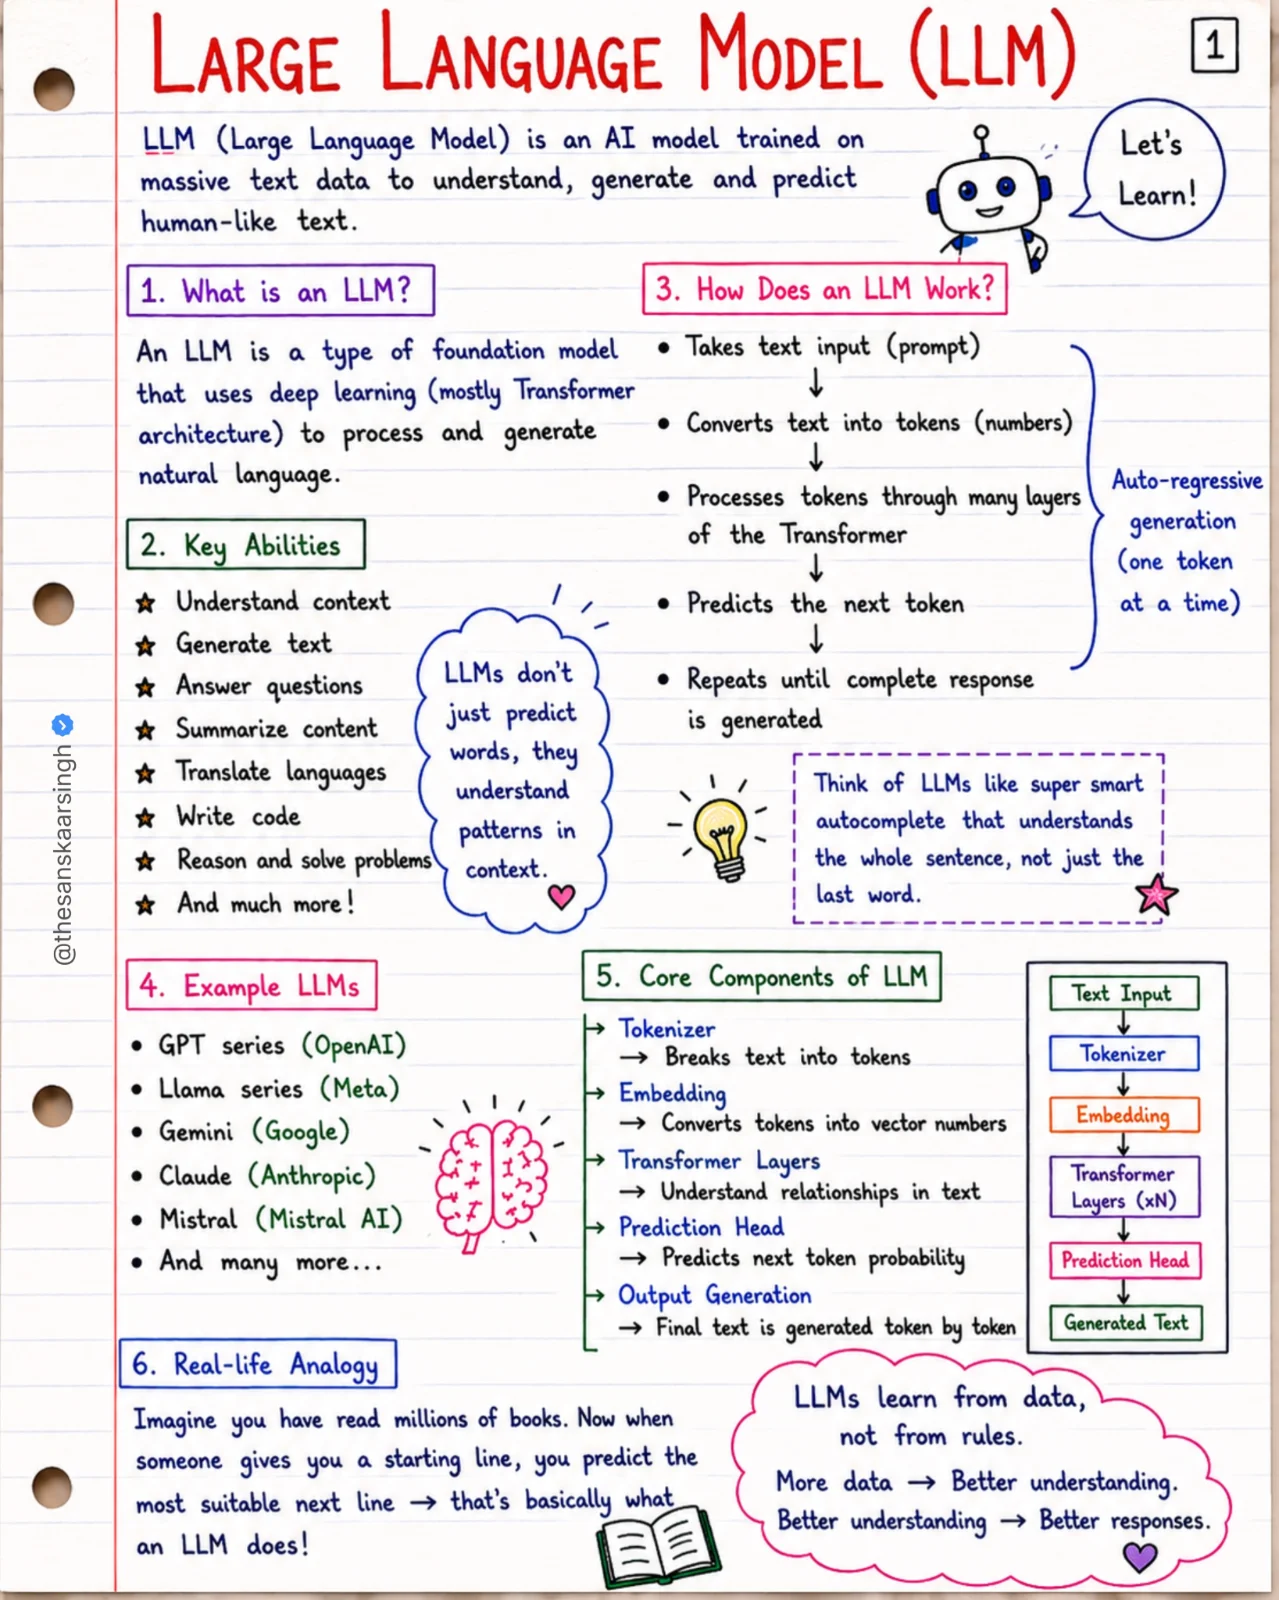 LARGE LANGUAGE MODEL (LLM)
1
LLM (Large Language Model) is an AI model trained on
massive text data to understand, generate and predict
human-like text.
Let's
Learn!
1. What is an LLM?
An LLM is a type of foundation model
that uses deep learning (mostly Transformer
architecture) to process and generate
natural language.
2. Key Abilities
★ Understand context
★ Generate text
★ Answer questions
★ Summarize content
★ Translate languages
★ Write code
★ Reason and solve problems
★ And much more!
LLMs don't
just predict
words, they
understand
patterns in
context.
3. How Does an LLM Work?
• Takes text input (prompt)
↓
• Converts text into tokens (numbers)
↓
• Processes tokens through many layers
of the Transformer
↓
• Predicts the next token
↓
• Repeats until complete response
is generated
Auto-regressive
generation
(one token
at a time)
Think of LLMs like super smart
autocomplete that understands
the whole sentence, not just the
last word.
@thesanskaarsingh
4. Example LLMs
• GPT series (OpenAI)
• Llama series (Meta)
• Gemini (Google)
• Claude (Anthropic)
• Mistral (Mistral AI)
• And many more...
5. Core Components of LLM
→ Tokenizer
→ Breaks text into tokens
→ Embedding
→ Converts tokens into vector numbers
→ Transformer Layers
→ Understand relationships in text
→ Prediction Head
→ Predicts next token probability
→ Output Generation
→ Final text is generated token by token
Text Input
↓
Tokenizer
↓
Embedding
↓
Transformer
Layers (xN)
↓
Prediction Head
↓
Generated Text
6. Real-life Analogy
Imagine you have read millions of books. Now when
someone gives you a starting line, you predict the
most suitable next line → that's basically what
an LLM does!
LLMs learn from data,
not from rules.
More data → Better understanding.
Better understanding → Better responses.